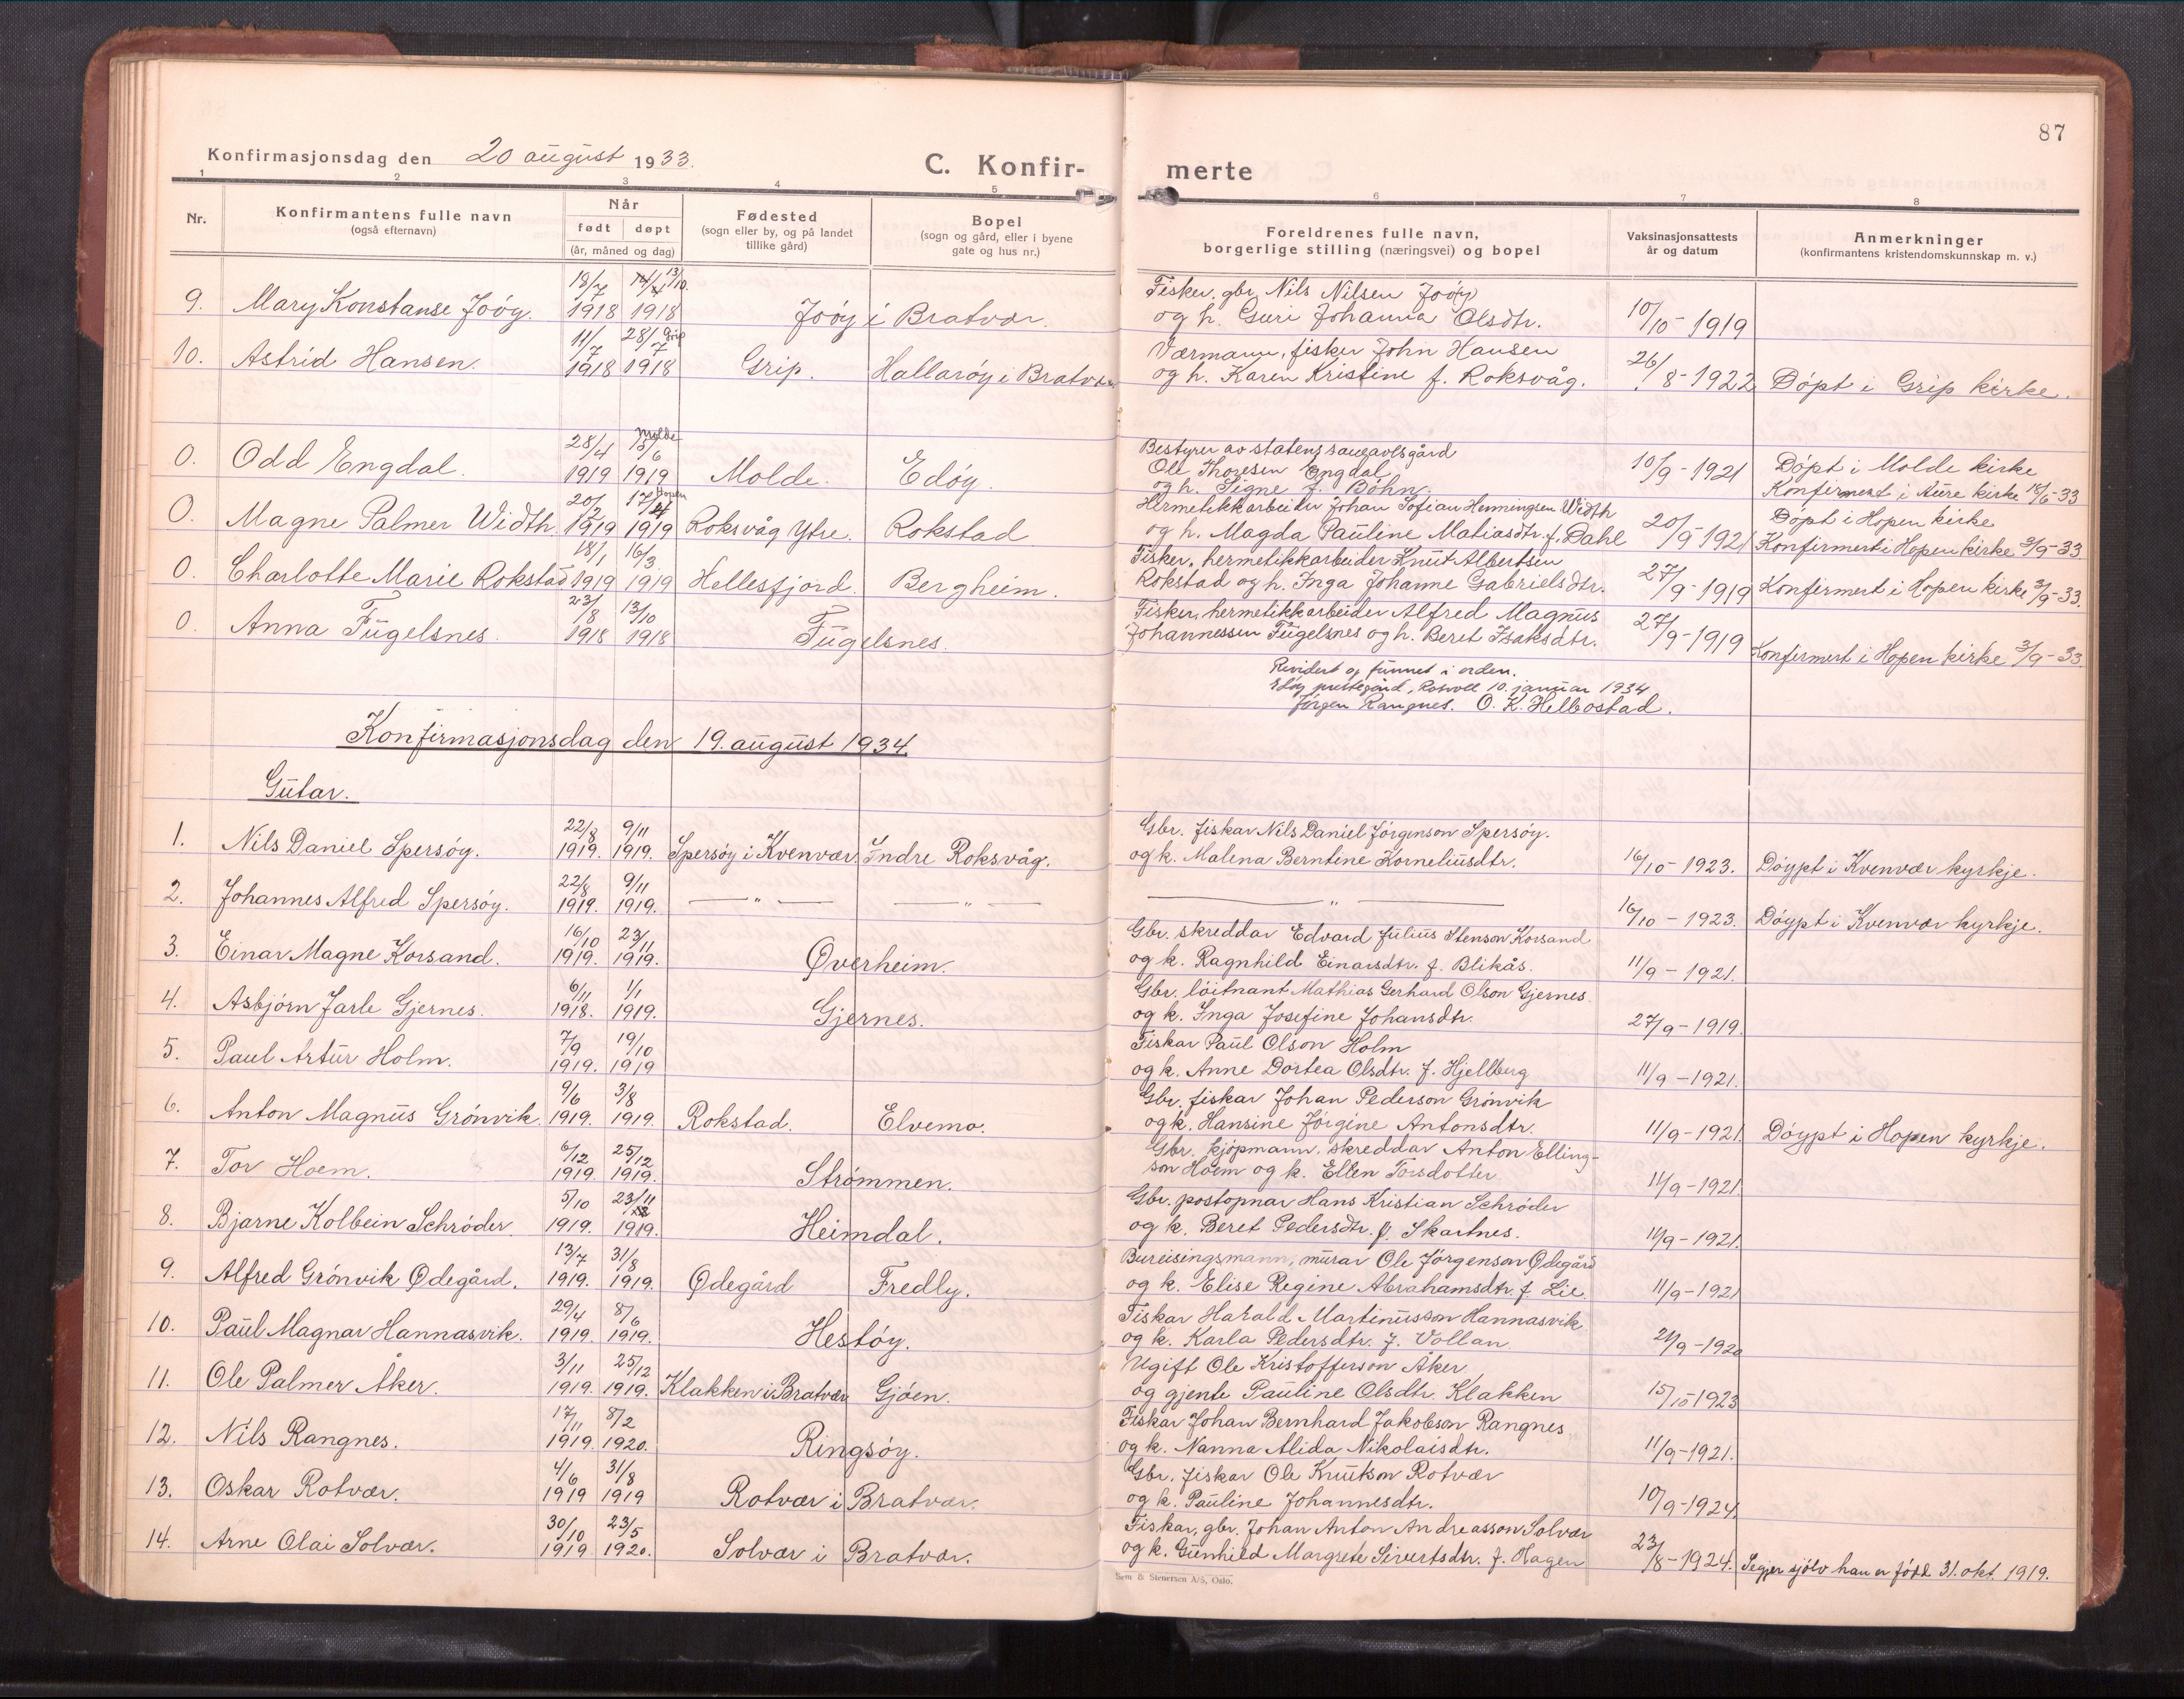 87
Konfirmasjonsdag den 20 august 1933. C. Konfirmerte
1 2 3 4 5 6 7 8
Nr. Konfirmantens fulle navn (også efternavn) Når født døpt (år, måned og dag) Fødested (sogn eller by, og på landet tillike gård) Bopel (sogn og gård, eller i byene gate og hus nr.) Foreldrenes fulle navn, borgerlige stilling (næringsvei) og bopel Vaksinasjonsattests år og datum Anmerkninger (konfirmantens kristendomskunnskap m. v.)
9. Mary Konstanse Joøy. 18/7 1918 13/10. 1918 Joøy i Bratvær. Fisker, gbr. Nils Nilsen Joøy
og h. Guri Johanna Olsdtr. 10/10-1919
10. Astrid Hansen. 11/7 1918 28/7 Grip 1918 Grip. Hallarøy i Bratvær Værmann, fisker John Hansen
og h. Karen Kristine f. Roksvåg. 26/8-1922 Døpt i Grip kirke.
0. Odd Engdal. 28/4 1919 Molde 15/6 1919 Molde. Edøy. Bestyrer av statens saueavlsgård
Ole Thoresen Engdal
og h. Signe f. Bøhn. 10/9-1921 Døpt i Molde kirke
Konfirmert i Aure kirke 18/6-33
0. Magne Palmer Width. 20/2 1919 Hopen 17/4 1919 Roksvåg Ytre. Rokstad Hermetikkarbeider Johan Sofian Henningsen Width
og h. Magda Pauline Matiasdtr. f. Dahl 20/9-1921 Døpt i Hopen kirke
Konfirmert i Hopen kirke 3/9-33
0. Charlotte Marie Rokstad 18/1 1919 16/3 1919 Hellesfjord. Bergheim. Fisker, hermetikkarbeider Knut Albertsen
Rokstad og h. Inga Johanne Gabrielsdtr. 27/9-1919 Konfirmert i Hopen kirke 3/9-33.
0. Anna Fugelsnes. 23/8 1918 13/10 1918 Fugelsnes. Fisker, hermetikkarbeider Alfred Magnus
Johannessen Fugelsnes og h. Beret Isaksdtr. 27/9-1919 Konfirmert i Hopen kirke 3/9-33
Revidert og funnet i orden.
Edøy prestegård, Rosvoll 10. januar 1934
Jørgen Rangnes. O. K. Helbostad.
Konfirmasjonsdag den 19. august 1934.
Gutar.
1. Nils Daniel Spersøy. 22/8 1919. 9/11 1919. Spersøy i Kvenvær. Indre Roksvåg. Gbr. fiskar Nils Daniel Jørgenson Spersøy.
og k. Malena Berntine Korneliusdtr. 16/10-1923. Døypt i Kvenvær kyrkje.
2. Johannes Alfred Spersøy. 22/8 1919. 9/11 1919. — " — — " — — " — 16/10-1923. Døypt i Kvenvær kyrkje.
3. Einar Magne Korsand. 16/10 1919. 23/11 1919. Øverheim. Gbr. skreddar Edvard Julius Stenson Korsand
og k. Ragnhild Einarsdtr. f. Blikås. 11/9-1921.
4. Asbjørn Jarle Gjernes. 6/11 1918. 1/1 1919. Gjernes. Gbr. løitnant Mathias Gerhard Olson Gjernes.
og k. Inga Josefine Johansdtr. 27/9-1919.
5. Paul Artur Holm. 7/9 1919. 19/10 1919 Fiskar Paul Olson Holm
og k. Anne Dortea Olsdtr. f. Hjellberg 11/9-1921.
6. Anton Magnus Grønvik. 9/6 1919. 3/8 1919. Rokstad. Elvemo. Gbr. fiskar Johan Pederson Grønvik
og k. Hansine Jørgine Antonsdtr. 11/9-1921. Døypt i Hopen kyrkje.
7. Tor Hoem. 6/12 1919. 25/12 1919. Strømmen. Gbr. kjøpmann, skreddar Anton Elling-
son Hoem og k. Ellen Torsdotter 11/9-1921.
8. Bjarne Kolbein Schrøder. 5/10 1919. 23/11 1919. Heimdal. Gbr. postopnar Hans Kristian Schrøder
og k. Beret Pedersdtr. f. Skartnes. 11/9-1921.
9. Alfred Grønvik Ødegård. 13/7 1919. 31/8 1919. Ødegård Fredly. Bureisingsmann, murar Ole Jørgenson Ødegård
og k. Elise Regine Abrahamsdtr. f. Lie. 11/9-1921
10. Paul Magnar Hannasvik. 29/4 1919. 8/6 1919. Hestøy. Fiskar Harald Martinusson Hannasvik
og k. Karla Pedersdtr. f. Vollan 21/9-1920
11. Ole Palmer Åker. 3/11 1919. 25/12 1919. Klakken i Bratvær Gjøen. Ugift Ole Kristofferson Åker
og gjente Pauline Olsdtr. Klakken 15/10-1923
12. Nils Rangnes. 17/11 1919. 8/2 1920. Ringsøy. Fiskar Johan Bernhard Jakobson Rangnes
og k. Nanna Alida Nikolaisdtr. 11/9-1921.
13. Oskar Rotvær. 4/6 1919 31/8 1919 Rotvær i Bratvær. Gbr. fiskar Ole Knutson Rotvær
og k. Pauline Johannesdtr. 10/9-1924.
14. Arne Olai Solvær. 30/10 1919 23/5 1920. Solvær i Bratvær. Fiskar, gbr. Johan Anton Andreasson Solvær
og k. Gunhild Margrete Sivertsdtr. f. Hagen 23/8-1924. Segjer sjølv han er fødd 31. okt. 1919.
Sem & Stenersen A/S, Oslo.